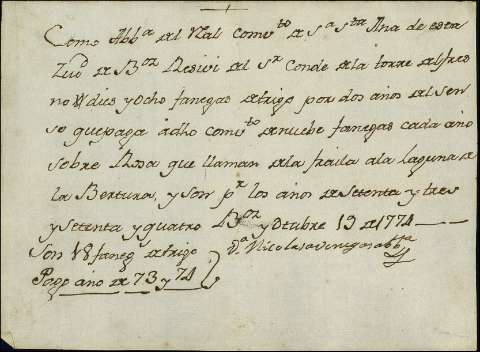 Como Abb.ª del Rl. Comv.to de S.ª S.ta Ana de esta
Ziud de B.oz Resivi del S.r Conde de la torre del fres
no 18 dies y Ocho fanegas de trigo por dos años del sen
so que paga â dho Comv.to de nuebe fanegas cada año
sobre Rosa que llaman de la fraila a la laguna de
la Bertura, y son p.r los años de Setenta y tres
y Setenta y quatro B.oz y Otubre 19 de 1774
Son 18 faneg. de trigo D.ª Nicolasa abb.ª
Pago año de 73 y 74